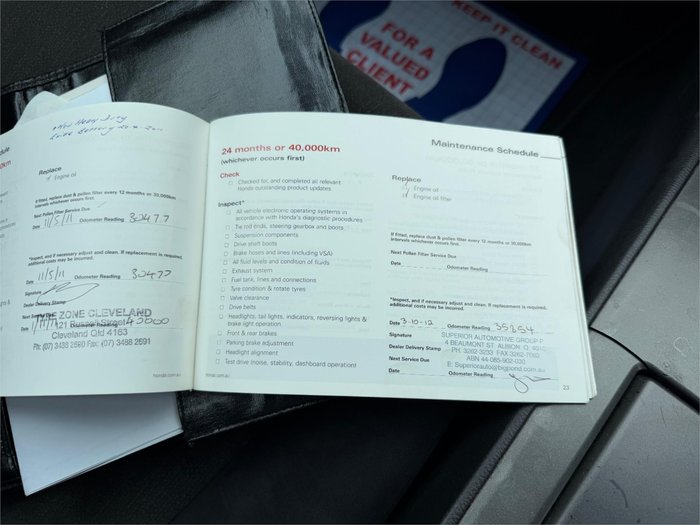 KEEP IT CLEAN
FOR A
VALUED
CLIENT
Replace
Engine oil
If fitted, replace dust & pollen filter every 12 months or 20,000km
intervals whichever occurs first.
Next Pollen Filter Service Due
Date 11/5/11 Odometer Reading 30477
*Inspect, and if necessary adjust and clean. If replacement is required,
additional costs may be incurred.
Date 11/5/11 Odometer Reading 30477
Signature
Dealer Delivery Stamp
Next Service Due
11/11/11 Odometer Reading 40000
ZONE CLEVELAND
Cleveland Qld 4163
honda.com.au
24 months or 40,000km
(whichever occurs first)
Check
Checked for, and completed all relevant
Honda outstanding product updates
Inspect*
All vehicle electronic operating systems in
accordance with Honda's diagnostic procedures
Tie rod ends, steering gearbox and boots
Suspension components
Drive shaft boots
Brake hoses and lines (including VSA)
All fluid levels and condition of fluids
Exhaust system
Fuel tank, lines and connections
Tyre condition & rotate tyres
Valve clearance
Drive belts
Headlights, tail lights, indicators, reversing lights &
brake light operation
Front & rear brakes
Parking brake adjustment
Headlight alignment
Test drive (noise, stability, dashboard operation)
honda.com.au
Maintenance Schedule
Replace
Engine oil
Engine oil filter
If fitted, replace dust & pollen filter every 12 months or 20,000km
intervals whichever occurs first.
Next Pollen Filter Service Due
Date Odometer Reading
*Inspect, and if necessary adjust and clean. If replacement is required,
additional costs may be incurred.
Date 3-10-12 Odometer Reading 35854
Signature SUPERIOR AUTOMOTIVE GROUP
Dealer Delivery Stamp 4 BEAUMONT ST. ALBION. Q.
PH. 3262 3233 FAX 3262
Next Service Due ABN 44-085-902-030
E: Superiorauto@bigpond.com.au
Date Odometer Reading
23